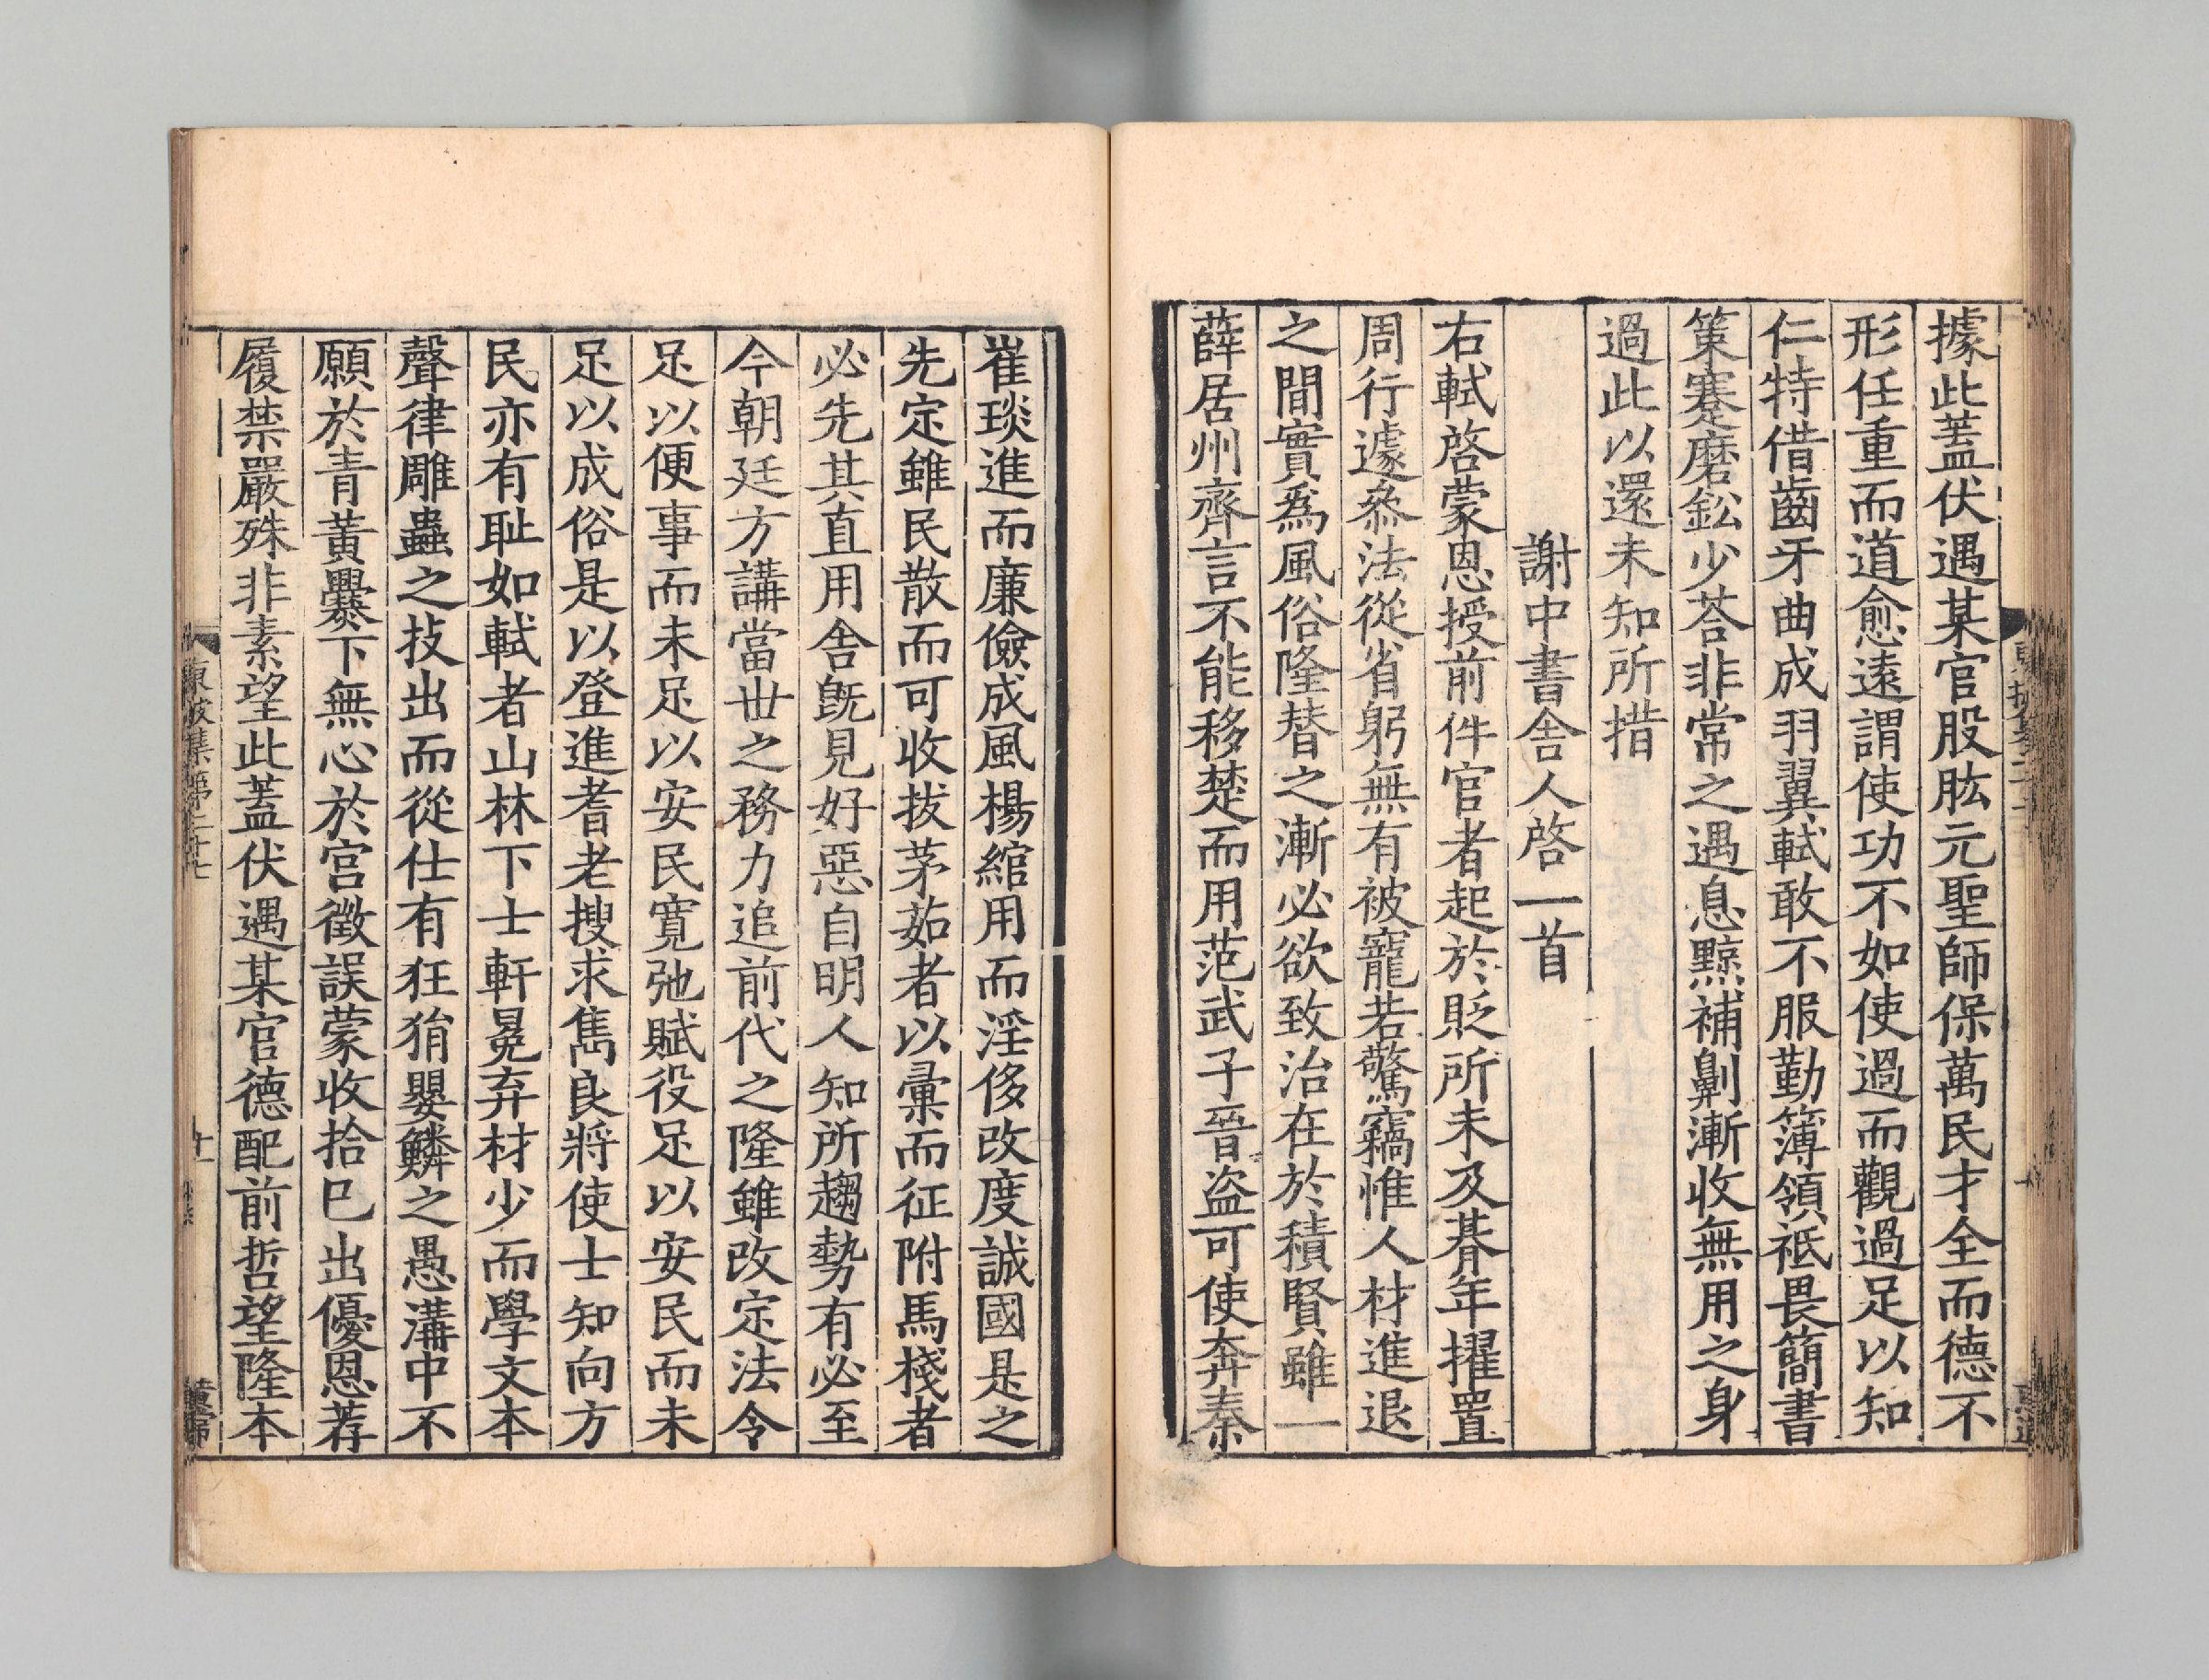 據此蓋伏遇某官股肱元聖師保萬民才全而德不
形任重而道愈遠謂使功不如使過而觀過足以知
仁特借齒牙曲成羽翼軾敢不服勤簿領祗畏簡書
策蹇磨鈆少荅非常之遇息黥補劓漸收無用之身
過此以還未知所措
謝中書舍人啓一首
右軾啓蒙恩授前件官者起於貶所未及朞年擢置
周行遽叅法從省躬無有被寵若驚竊惟人材進退
之間實爲風俗隆替之漸必欲致治在於積賢雖一
薛居州齊言不能移楚而用范武子晉盜可使奔秦
崔琰進而廉儉成風楊綰用而淫侈改度誠國是之
先定雖民散而可收拔茅茹者以彙而征附馬棧者
必先其直用舍旣見好惡自明人知所趨勢有必至
今朝廷方講當世之務力追前代之隆雖改定法令
足以便事而未足以安民寬弛賦役足以安民而未
足以成俗是以登進耆老搜求雋良將使士知向方
民亦有耻如軾者山林下士軒冕弃材少而學文本
聲律雕蟲之技出而從仕有狂狷嬰鱗之愚溝中不
願於青黃爨下無心於宮徵誤蒙收拾已出優恩荐
履禁嚴殊非素望此蓋伏遇某官德配前哲望隆本
東坡集第二十七
十一